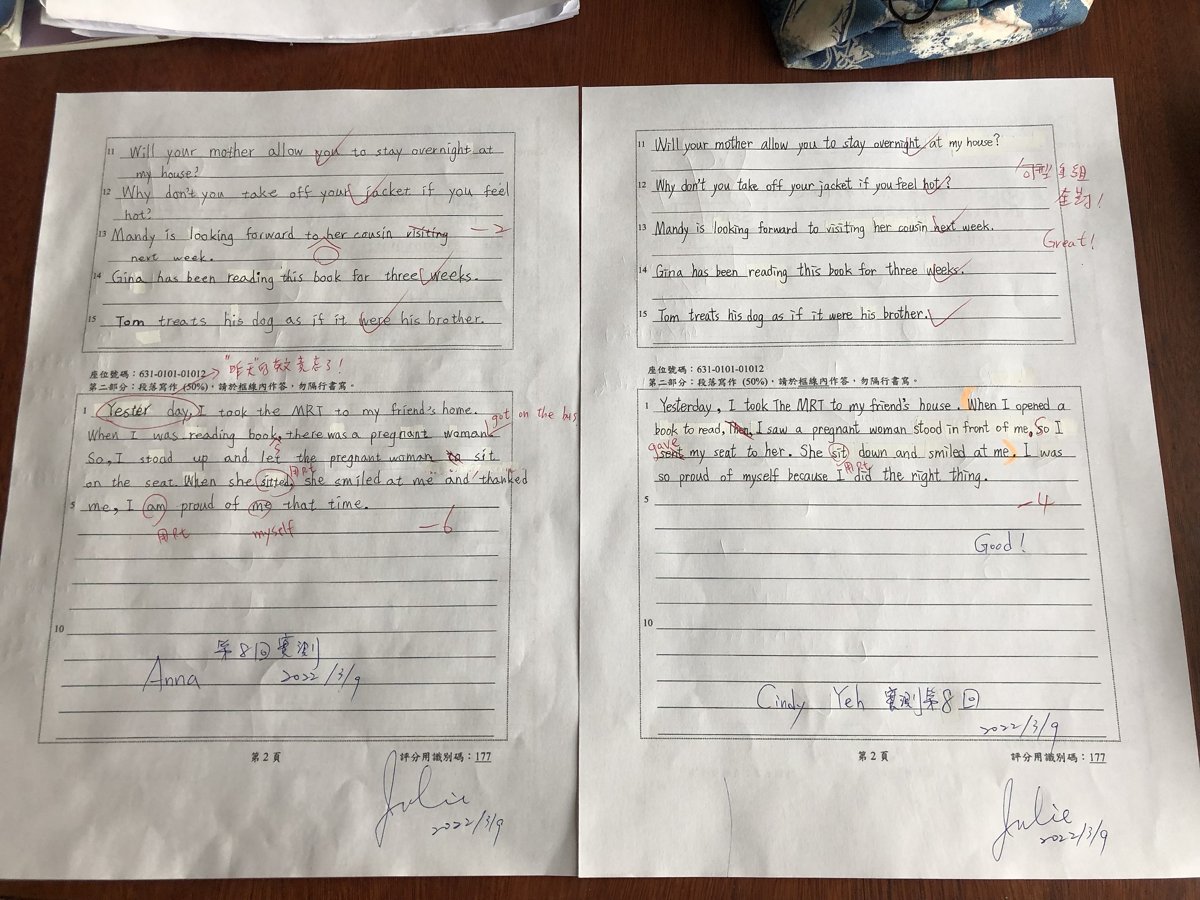 11 Will your mother allow you to stay overnight at
my house?
12 Why don't you take off your jacket if you feel
hot?
13 Mandy is looking forward to her cousin visiting -2
next week.
14 Gina has been reading this book for three weeks.
15 Tom treats his dog as if it were his brother.
座位號碼：631-0101-01012 "昨天"的英文忘了!
第二部分：段落寫作 (50%)，請於框線內作答，勿隔行書寫。
1 Yester day, I took the MRT to my friend's home.
got on the bus
When I was reading book, there was a pregnant woman
So, I stood up and let the pregnant woman to sit
用Pt
on the seat. When she sitted, she smiled at me and thanked
5 me, I am proud of me that time.
用Pt myself -6
10
第8回實測
Anna 2022/3/9
第 2 頁 評分用識別碼：177
Julie
2022/3/9
11 Will your mother allow you to stay overnight at my house?
12 Why don't you take off your jacket if you feel hot?
句型全組
全對!
13 Mandy is looking forward to visiting her cousin next week.
Great!
14 Gina has been reading this book for three weeks.
15 Tom treats his dog as if it were his brother.
座位號碼：631-0101-01012
第二部分：段落寫作 (50%)，請於框線內作答，勿隔行書寫。
1 Yesterday, I took The MRT to my friend's house. When I opened a
book to read, Then, I saw a pregnant woman stood in front of me. So I
gave
sent my seat to her. She sit down and smiled at me. I was
用Pt
so proud of myself because I did the right thing.
5
-4
Good!
10
Cindy Yeh 實測第8回
2022/3/9
第 2 頁 評分用識別碼：177
Julie
2022/3/9